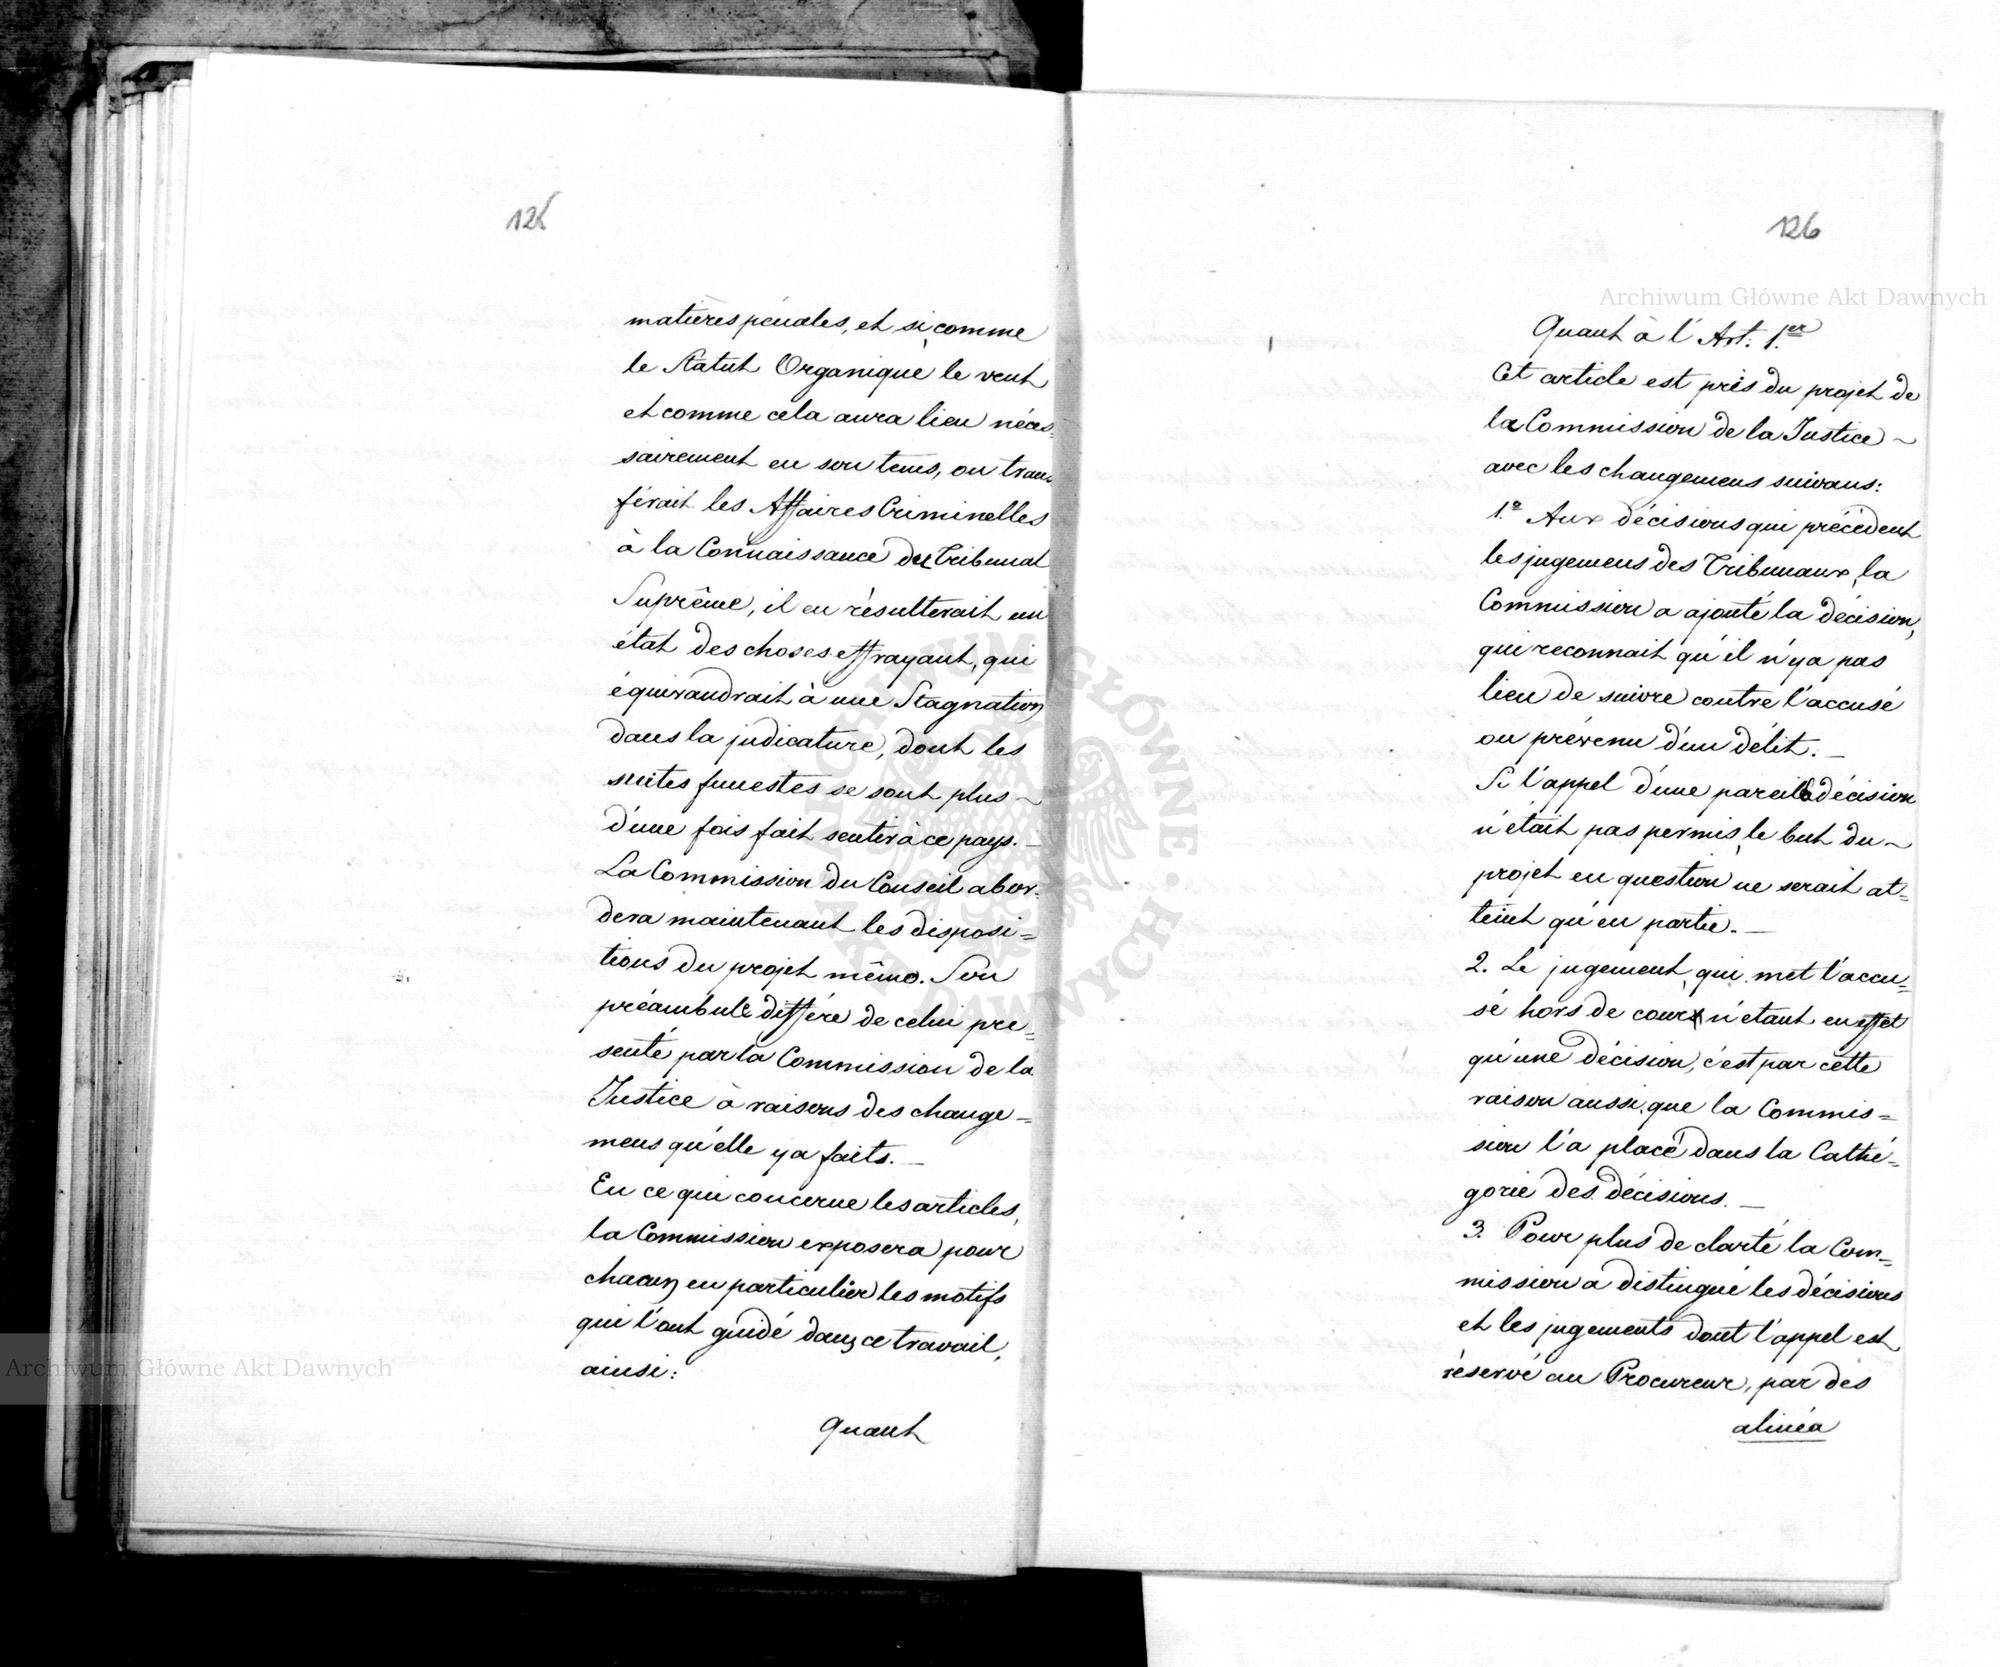 125
matières pénales, et si, comme
le Statut Organique le veut
et comme cela aura lieu néces-
sairement en son tems, on trans-
férait les Affaires Criminelles
à la Connaissance du Tribunal
Suprême, il en résulterait un
état des choses effrayant, qui
équivaudrait à une Stagnation
dans la judicature, dont les
suites funestes se sont plus ~
d'une fois fait sentir à ce pays. —
La Commission du Conseil abor-
dera maintenant les disposi=
tions du projet même. Son
préambule diffère de celui pre=
senté par la Commission de la
Justice à raisons des change=
mens qu'elle y a faits. —
En ce qui concerne les articles,
la Commission exposera pour
chacun en particulier les motifs
qui l'ont guidé dans ce travail,
ainsi:
Quant
126
Quant à l'Art. 1.er
Cet article est pris du projet de
la Commission de la Justice ~
avec les changemens suivans:
1.º Aux décisions qui précèdent
les jugemens des Tribunaux, la
Commission a ajouté la décision,
qui reconnait qu'il n'y a pas
lieu de suivre contre l'accusé
ou prévenu d'un délit. —
Si l'appel d'une pareille décision
n'était pas permis, le but du ~
projet en question ne serait at=
teint qu'en partie. —
2. Le jugement, qui met l'accu=
sé hors de cour, n'étant en effet
qu'une décision, c'est par cette
raison aussi, que la Commis=
sion l'a placé dans la Cathé=
gorie des décisions. —
3. Pour plus de clarté la Com=
mission a distingué les décisions
et les jugements dont l'appel est
réservé au Procureur, par des
alinéa
Archiwum Główne Akt Dawnych
Archiwum Główne Akt Dawnych
ARCHIWUM GŁÓWNE AKT DAWNYCH